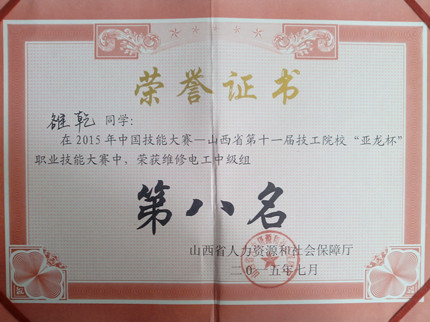 荣誉证书
雒乾 同学:
在2015年中国技能大赛—山西省第十一届技工院校“亚龙杯”
职业技能大赛中，荣获维修电工中级组
第八名
山西省人力资源和社会保障厅
二〇一五年七月